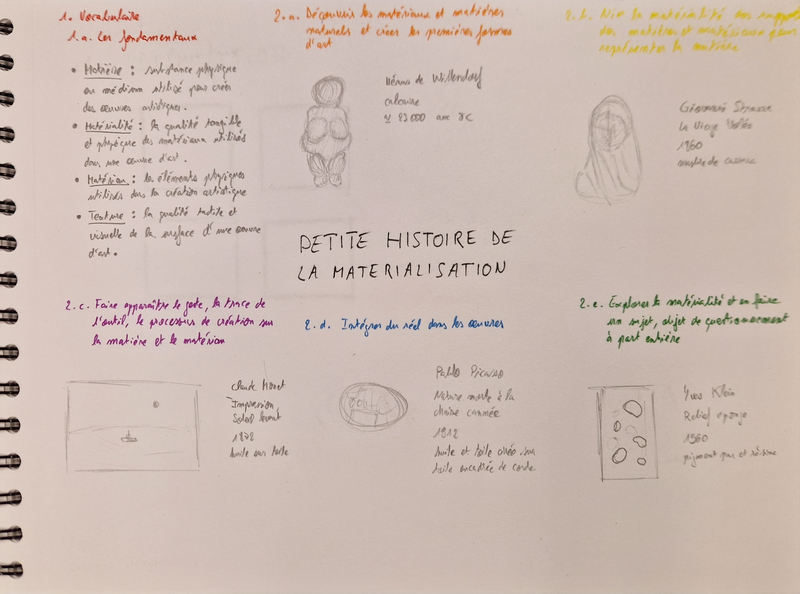 1. Vocabulaire
1.a. Les fondamentaux
• Matière : substance physique
ou médium utilisé pour créer
des oeuvres artistiques.
• Matérialité : la qualité tangible
et physique des matériaux utilisés
dans une oeuvre d'art.
• Matériau : la éléments physiques
utilisés dans la création artistique
• Texture : la qualité tactile et
visuelle de la surface d'une oeuvre
d'art.
2.a. Découvrir les matériaux et matières
naturels et créer les premières formes
d'art
Vénus de Willendorf
calcaire
23000 ans JC
2.b. Nier la matérialité des
des matières et matériaux pour
représenter la matière
Giovanni Strazza
La Vierge Voilée
1860
marbre de
PETITE HISTOIRE DE
LA MATERIALISATION
2.c. Faire apparaître le geste, la trace de
l'outil, le processus de création sur
la matière et le matériau
Claude Monet
Impression,
Soleil levant
1872
huile sur toile
2.d. Intégrer du réel dans les oeuvres
Pablo Picasso
Nature morte à la
chaise cannée
1912
huile et toile cirée sur
toile encadrée de corde
2.e. Explorer la matérialité et en faire
un sujet, objet de questionnement
à part entière
Yves Klein
Relief éponge
1960
pigment pur et résine